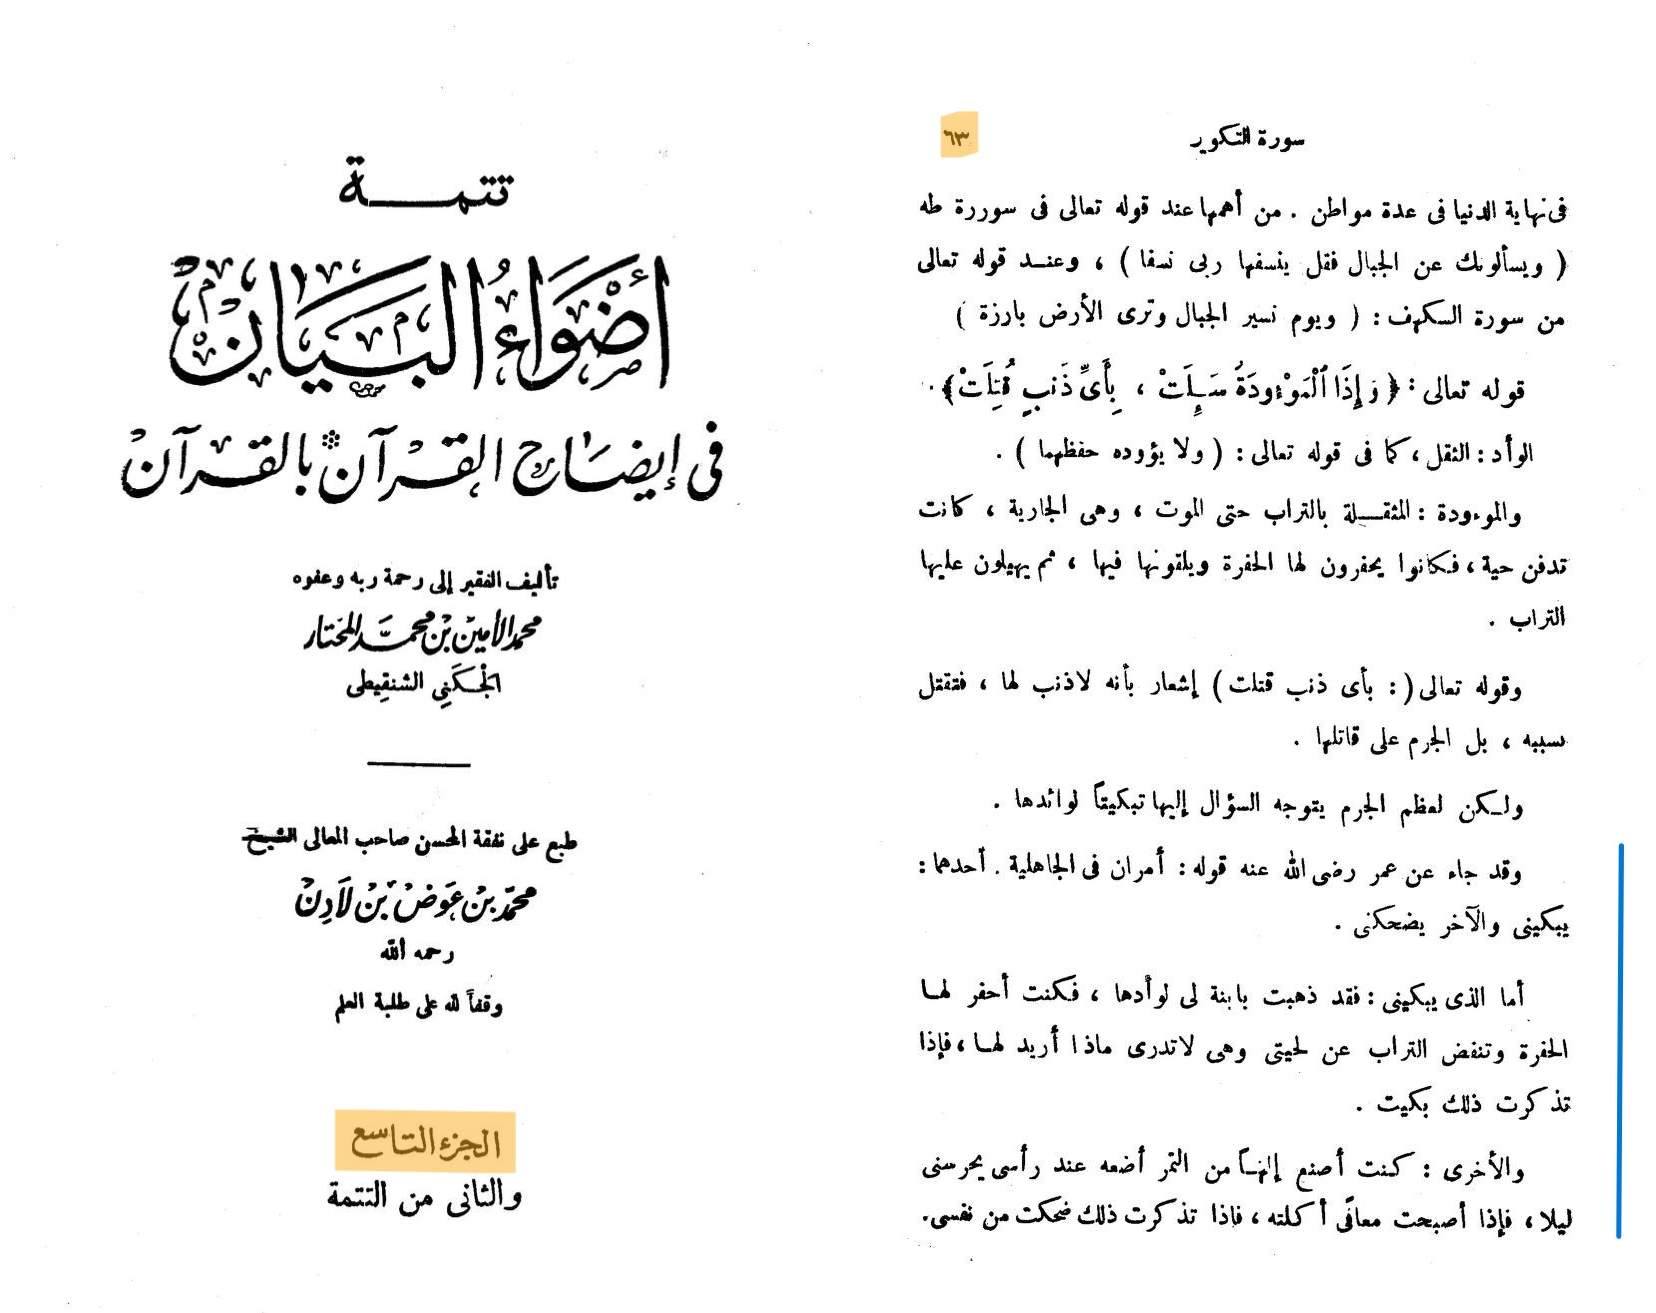 تتمـــــة
أَضْوَاءُ الْبَيَانْ
فى إيضَاح القرآن بالقرآن
تأليف الفقير إلى رحمة ربه وعفوه
محمد الأمين بن محمد المختار
الجَكَنِى الشنقِيطى
طبع على نفقة المحسن صاحب المعالى الشيخ
محمّد بن عَوَض بن لَادِن
رحمه الله
وقفاً لله على طلبة العلم
الجزء التاسع
والثانى من التتمة
سورة التكوير
٦٣
فى نهاية الدنيا فى عدة مواطن . من أهمها عند قوله تعالى فى سوررة طه
( ويسألونك عن الجبال فقل ينسفها ربى نسفا ) ، وعنــد قوله تعالى
من سورة الكهف : ( ويوم نسير الجبال وترى الأرض بارزة )
قوله تعالى : ﴿ وَإِذَا ٱلْمَوْءُودَةُ سُئِلَتْ ، بِأَىِّ ذَنبٍ قُتِلَتْ﴾ .
الوأد : الثقل ، كما فى قوله تعالى : ( ولا يؤوده حفظهما ) .
والموءودة : المثقــلة بالتراب حتى الموت ، وهى الجارية ، كانت
تدفن حية ، فكانوا يحفرون لها الحفرة ويلقونها فيها ، ثم يهيلون عليها
التراب .
وقوله تعالى ( : بأى ذنب قتلت ) إشعار بأنه لاذنب لها ، فتقتل
بسببه ، بل الجرم على قاتلها .
ولـكن لعظم الجرم يتوجه السؤال إليها تبكيتاً لوائدها .
وقد جاء عن عمر رضى الله عنه قوله : أمران فى الجاهلية . أحدهما :
يبكينى والآخر يضحكنى .
أما الذى يبكينى : فقد ذهبت بابنة لى لوأدها ، فكنت أحفر لهـا
الحفرة وتنفض التراب عن لحيتى وهى لاتدرى ماذا أريد لهـا ، فإذا
تذكرت ذلك بكيت .
والأخرى : كنت أصنع إلهـاً من التمر أضعه عند رأسى يحرسنى
ليلا ، فإذا أصبحت معافًى أكلته ، فإذا تذكرت ذلك ضحكت من نفسى .